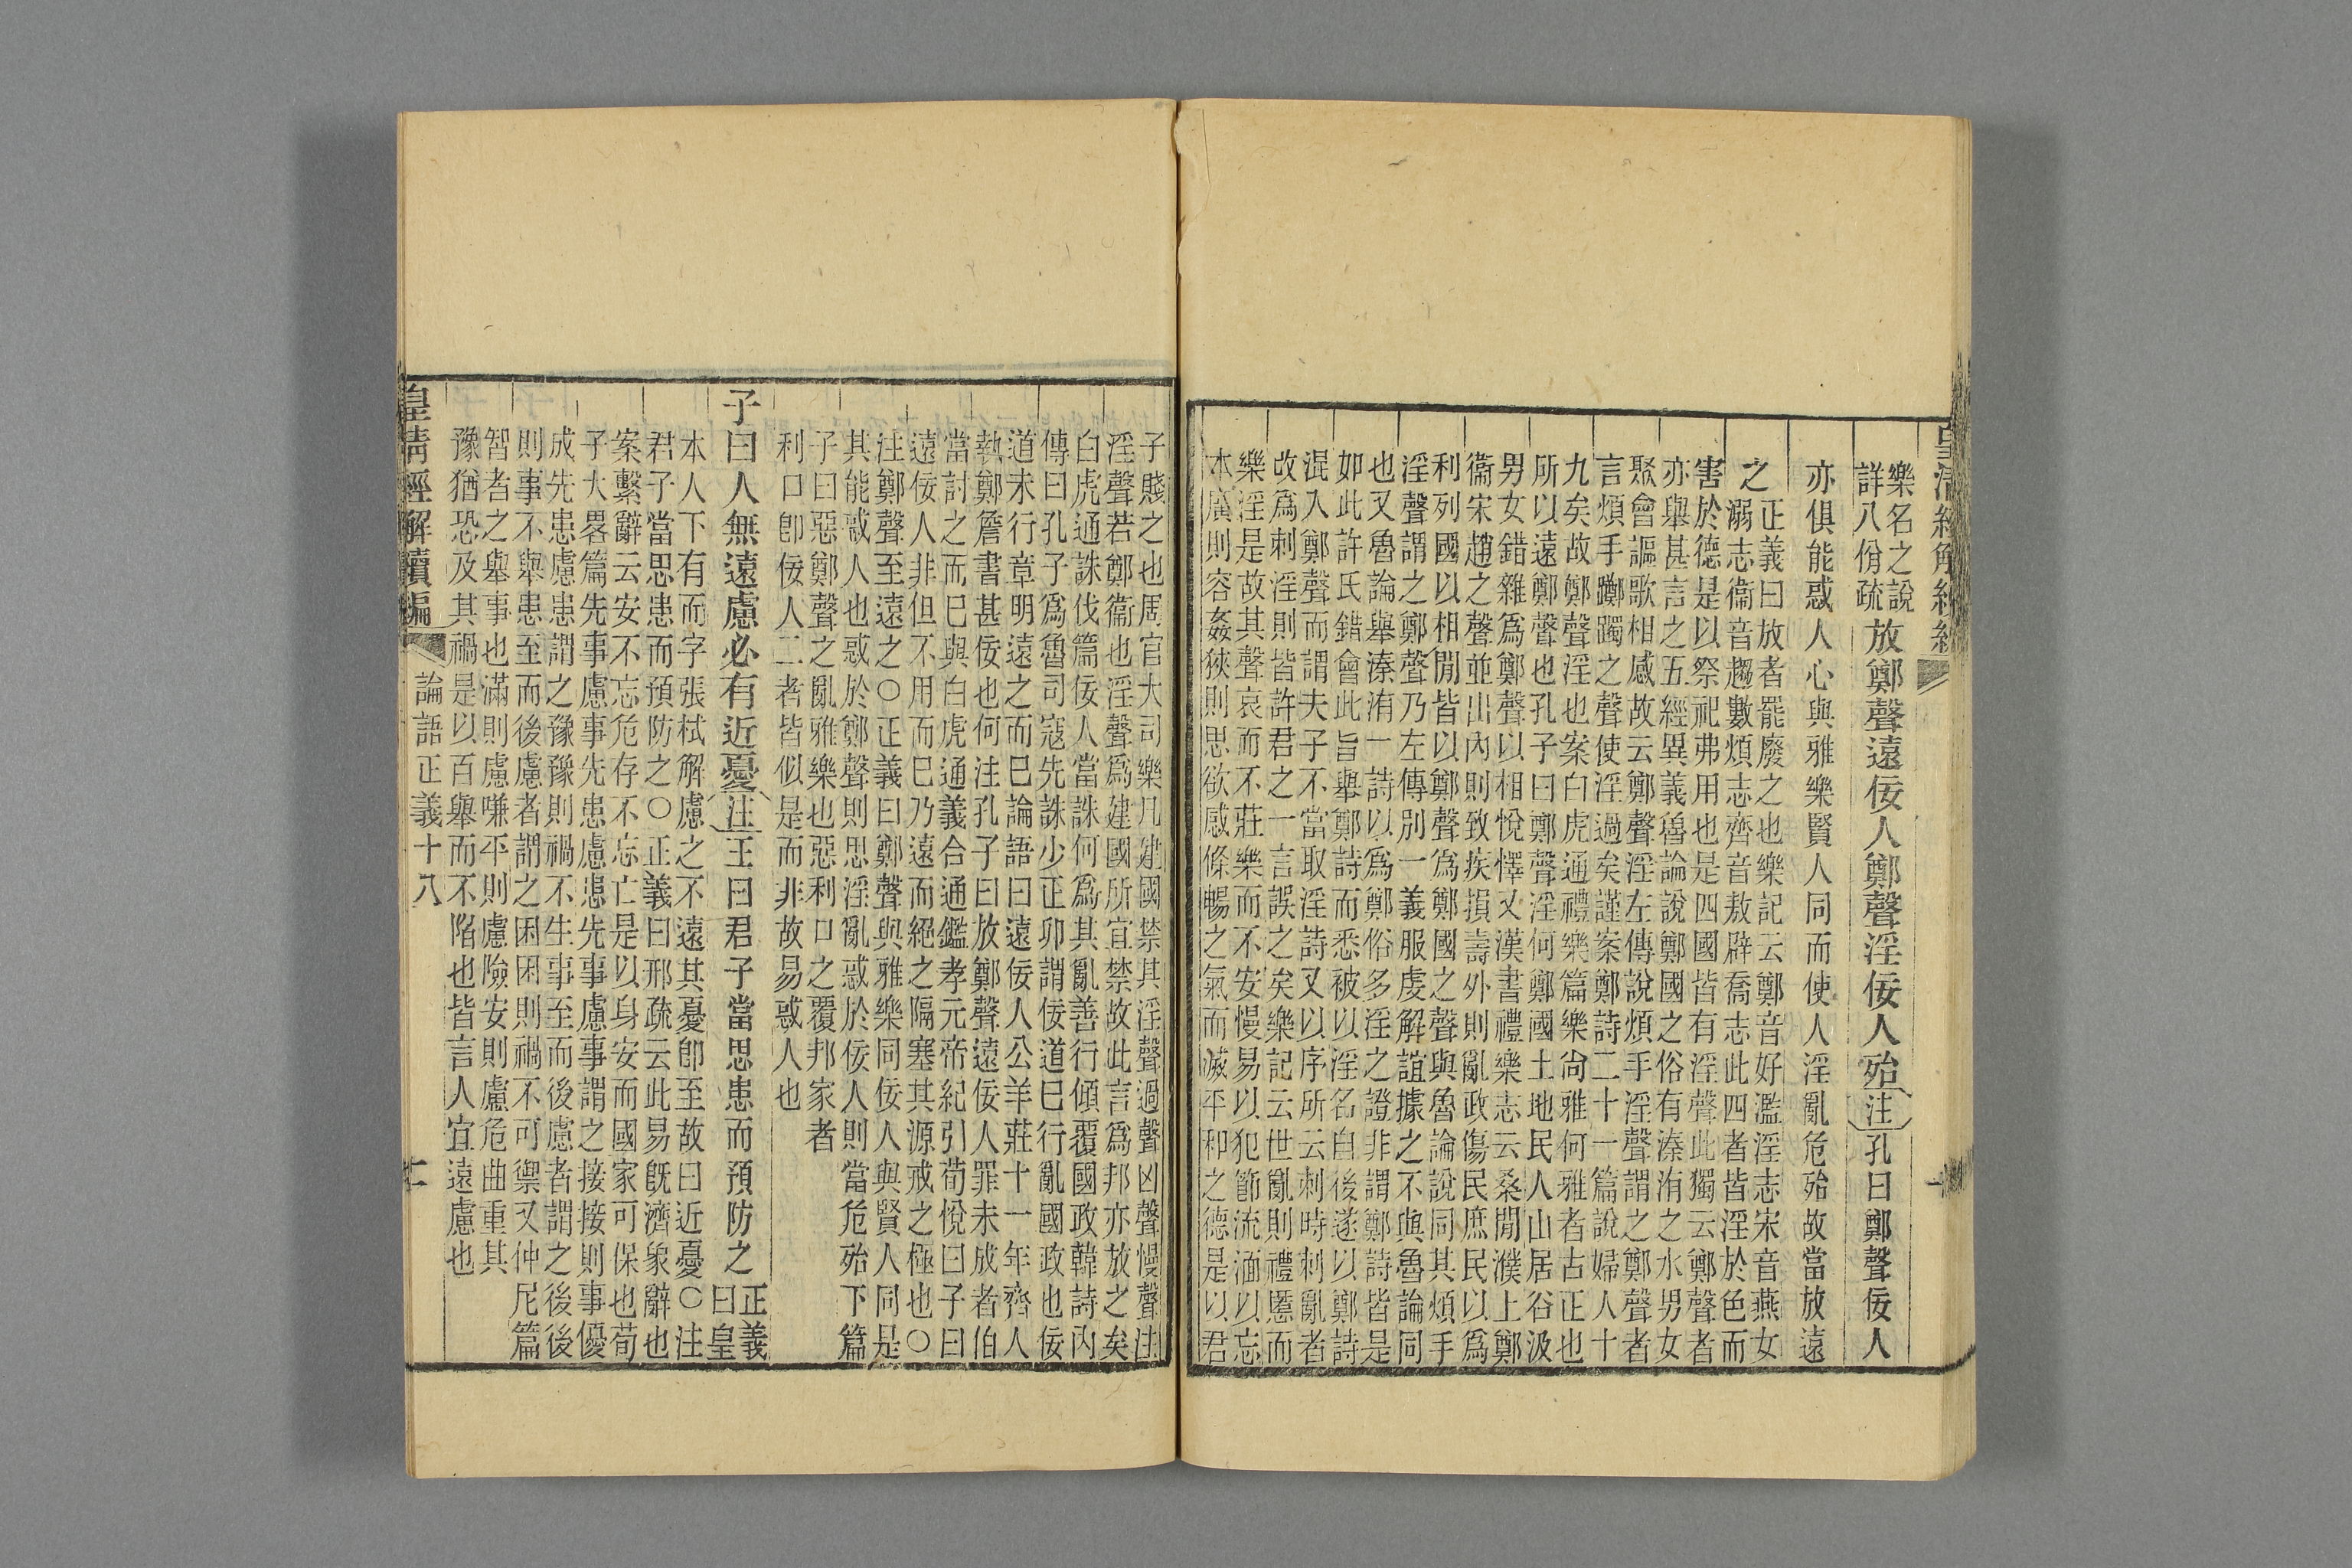 皇清經解續編
樂名之說
詳八佾疏
放鄭聲遠佞人鄭聲淫佞人殆注孔曰鄭聲佞人
亦俱能惑人心與雅樂賢人同而使人淫亂危殆故當放遠
之
正義曰放者罷廢之也樂記云鄭音好濫淫志宋音燕女
溺志衞音趨數煩志齊音敖辟喬志此四者皆淫於色而
害於德是以祭祀弗用也是四國皆有淫聲此獨云鄭聲者
亦舉甚言之五經異義魯論說鄭國之俗有溱洧之水男女
聚會謳歌相感故云鄭聲淫左傳說煩手淫聲謂之鄭聲者
言煩手躑躅之聲使淫過矣謹案鄭詩二十一篇說婦人十
九矣故鄭聲淫也案白虎通禮樂篇樂尙雅何雅者古正也
所以遠鄭聲也孔子曰鄭聲淫何鄭國土地民人山居谷汲
男女錯雜爲鄭聲以相悅懌又漢書禮樂志云桑閒濮上鄭
衞宋趙之聲並出內則致疾損壽外則亂政傷民庶民以爲
利列國以相閒皆以鄭聲爲鄭國之聲與魯論說同其煩手
淫聲謂之鄭聲乃左傳別一義服虔解誼據之不與魯論同
也又魯論舉溱洧一詩以爲鄭俗多淫之證非謂鄭詩皆是
如此許氏錯會此旨舉鄭詩而悉被以淫名自後遂以鄭詩
混入鄭聲而謂夫子不當取淫詩又以序所云刺時刺亂者
改爲刺淫則皆許君之一言誤之矣樂記云世亂則禮慝而
樂淫是故其聲哀而不莊樂而不安慢易以犯節流湎以忘
本廣則容姦狹則思欲感條暢之氣而滅平和之德是以君
子賤之也周官大司樂凡建國禁其淫聲過聲凶聲慢聲注
淫聲若鄭衞也淫聲爲建國所宜禁故此言爲邦亦放之矣
白虎通誅伐篇佞人當誅何爲其亂善行傾覆國政韓詩內
傳曰孔子爲魯司寇先誅少正卯謂佞道已行亂國政也佞
道未行章明遠之而已論語曰遠佞人公羊莊十一年齊人
執鄭詹書甚佞也何注孔子曰放鄭聲遠佞人罪未成者伯
當討之而已與白虎通義合通鑑孝元帝紀引荀悅曰子曰
遠佞人非但不用而已乃遠而絕之隔塞其源戒之極也○
注鄭聲至遠之○正義曰鄭聲與雅樂同佞人與賢人同是
其能惑人也惑於鄭聲則思淫亂惑於佞人則當危殆下篇
子曰惡鄭聲之亂雅樂也惡利口之覆邦家者
利口卽佞人二者皆似是而非故易惑人也
子曰人無遠慮必有近憂注王曰君子當思患而預防之
正義
曰皇
本人下有而字張栻解慮之不遠其憂卽至故曰近憂○注
君子當思患而預防之○正義曰邢疏云此易旣濟象辭也
案繫辭云安不忘危存不忘亡是以身安而國家可保也荀
子大畧篇先事慮事先患慮患先事慮事謂之接接則事優
成先患慮患謂之豫豫則禍不生事至而後慮者謂之後後
則事不舉患至而後慮者謂之困困則禍不可禦又仲尼篇
智者之舉事也滿則慮嗛平則慮險安則慮危曲重其
豫猶恐及其禍是以百舉而不陷也皆言人宜遠慮也
皇清經解續編 論語正義十八 二